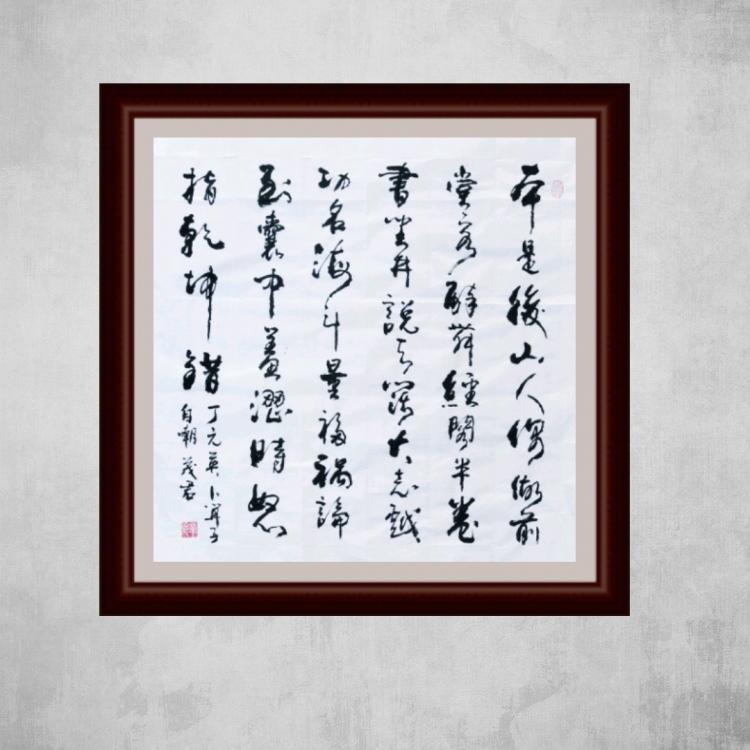 本是後山人偶做前
堂客醉舞經閣半卷
書坐井說天闊大志戲
功名海斗量福禍論
到囊中羞澀時怒
指乾坤錯
丁元英卜算子
自嘲 茂君